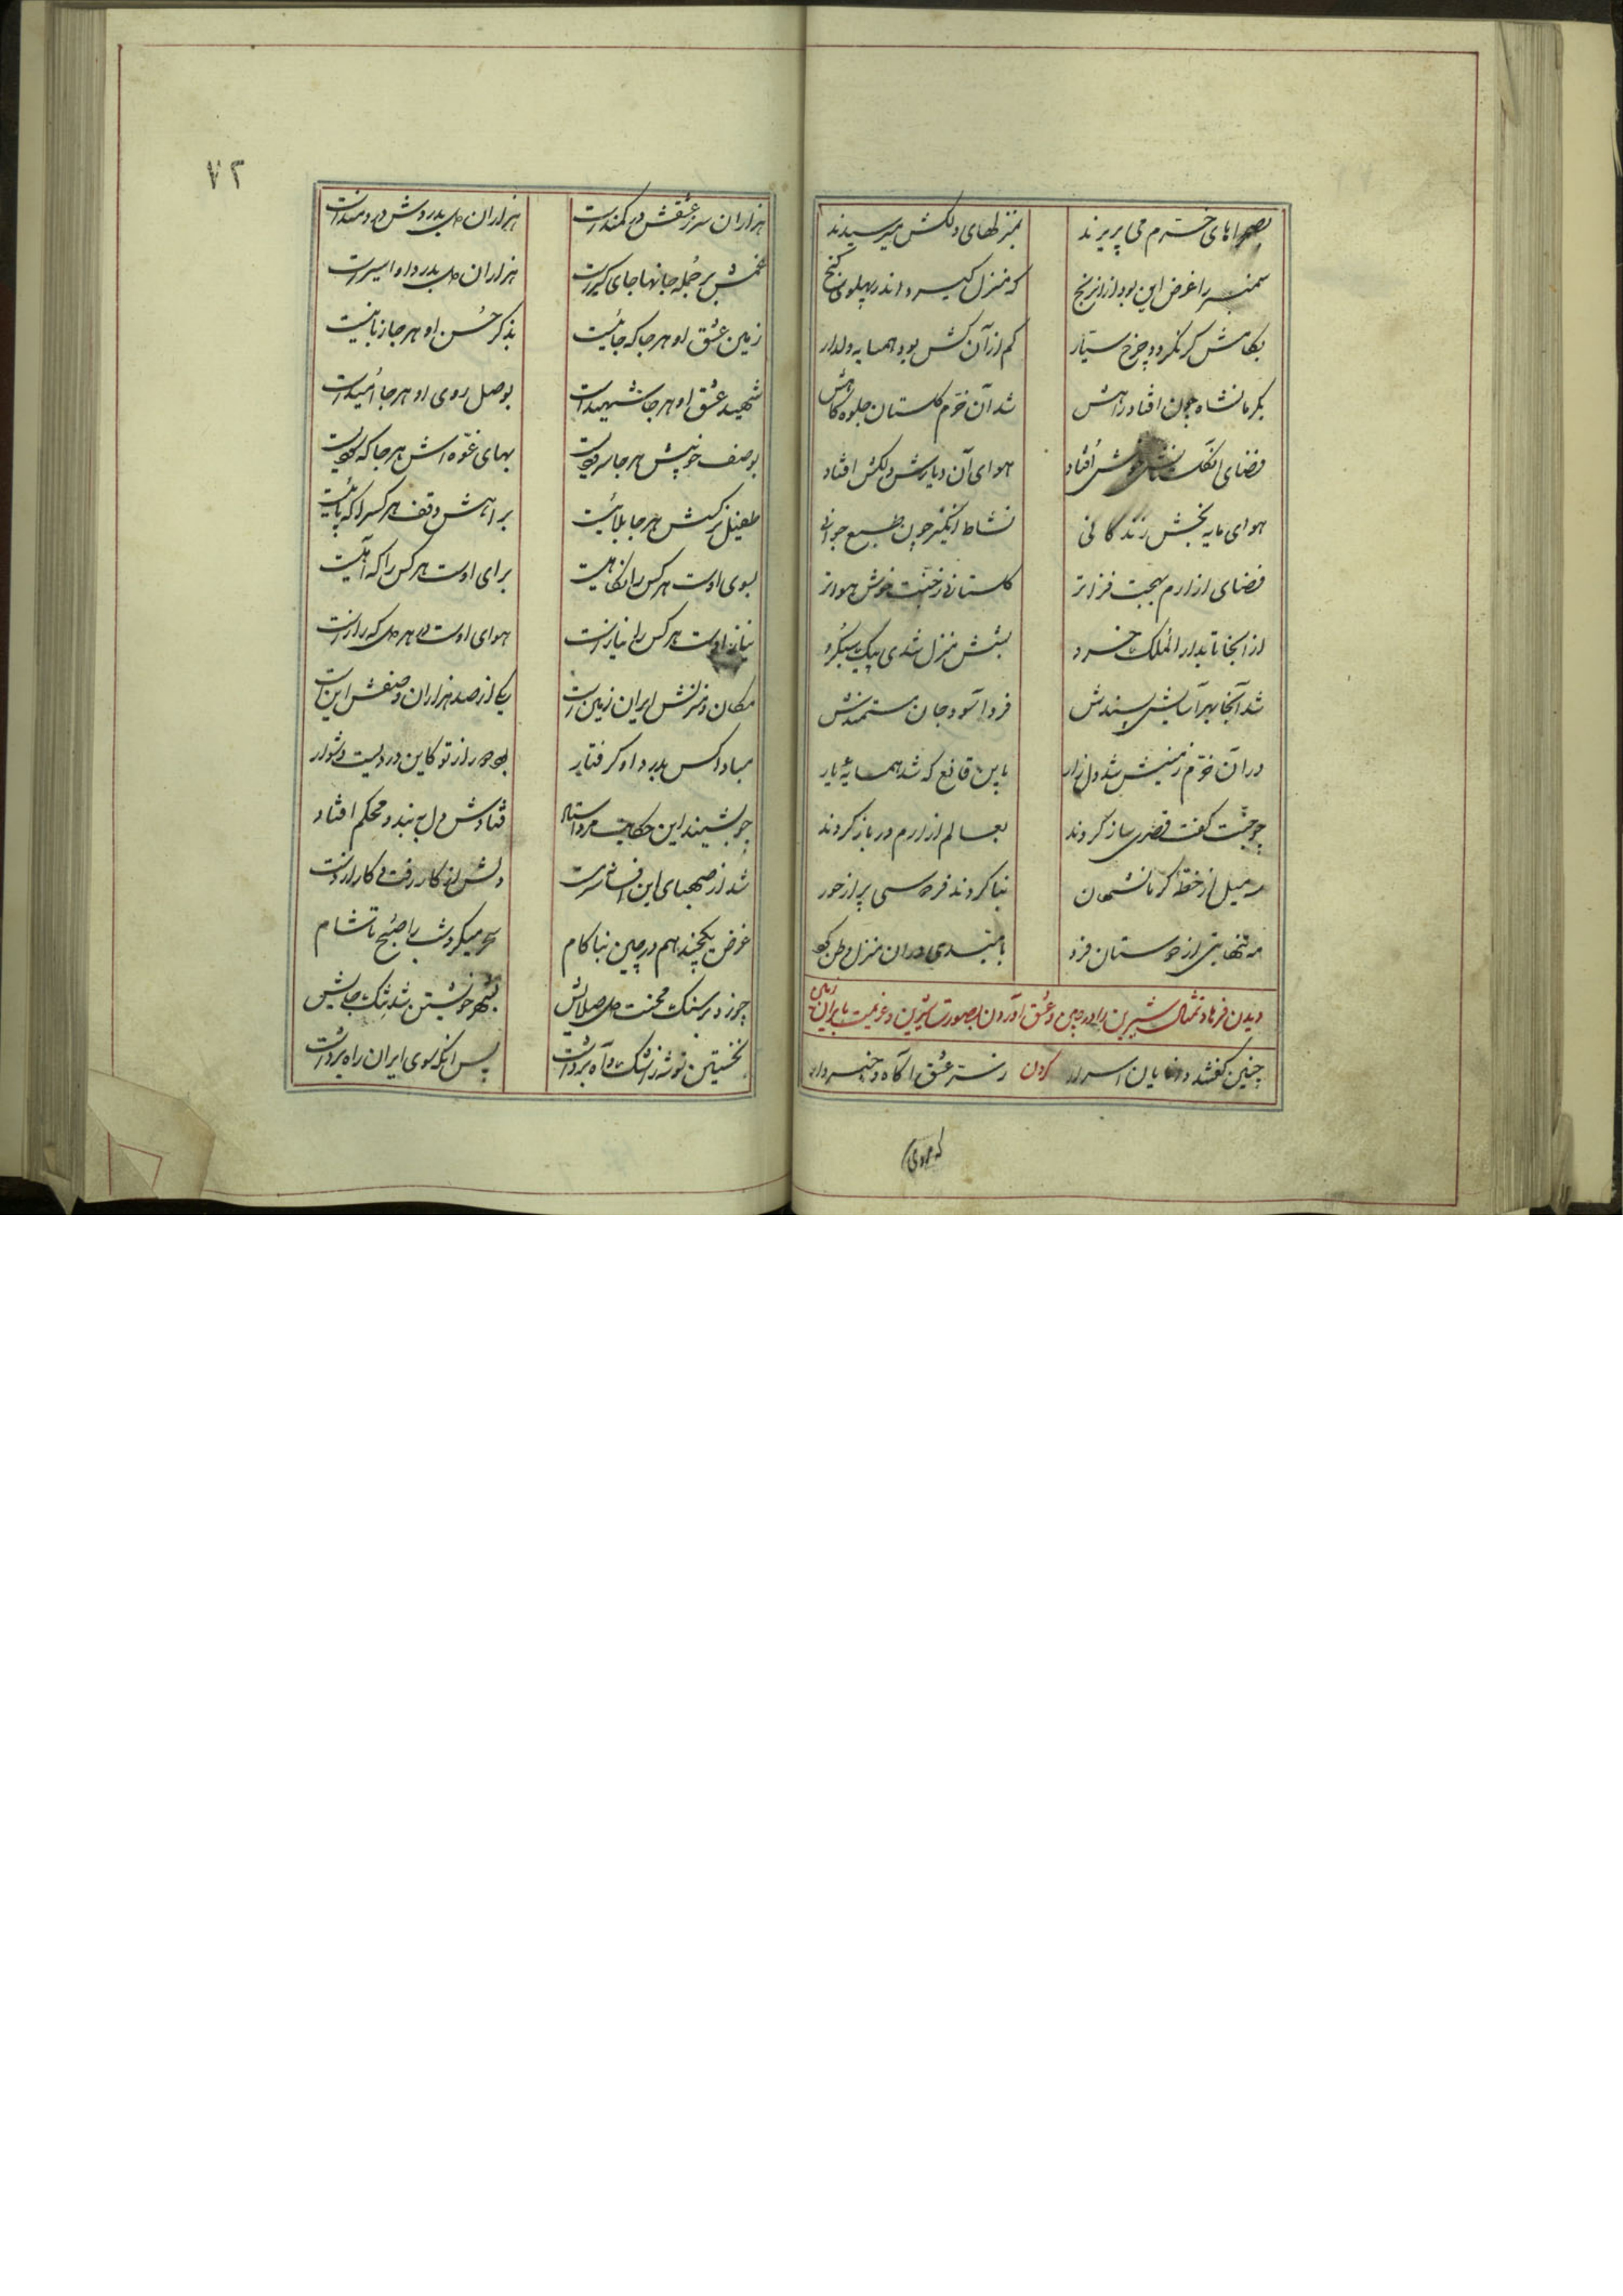 بصحراهای خرم می پریدند بمنزلهای دلکش میرسیدند
سمنبر را غرض این بود ازان رنج که منزل گیرد اندر پهلوی گنج
بکامش گر نگردد چرخ سیّار کم از آن کش بود همسایه دلدار
بکرمانشاه چون افتاد راهش شد آن خرّم گلستان جلوه گاهش
فضای آن خوش افتاد هوای آن دیارش دلکش افتاد
هوای مایه بخش زندگانی نشاط انگیز چون طبع جوانی
فضای از ارم بهجت فزاتر گلستانی ز جنّت خوش هواتر
از آنجا تا بدار الملک خسرو بشش منزل شدی پیک سبکرو
شد آنجا بهر آسایش پسندش فرو آسود جان مستمندش
در آن خرّم زمینش شد دل زار باین قانع که شد همسایهٔ یار
چو جنّت گفت قصری ساز کردند بعالم از ارم در باز کردند
سه میل از خطّهٔ کرمانشهان بنا کردند فردوسی پر از حور
مه تنها بتی از دوستان فرد بامّیدی در آن منزل وطن کرد
دیدن فرهاد تمثال شیرین را در چین و عشق آوردن بصورت شیرین و عزیمت بایران زمین
چنین گفتند دانایان اسرار کردن ز سرّ عشق آگاه و خبردار
که چون
۷۲
هزاران سر ز عشقش در کمندست هزاران دل بدردش دردمندست
غمش بر جمله جانها جای گیرست هزاران دل بدرد او اسیرست
زمین عشق او هر جا که جائیست بذکر حُسن او هر جا زبانیست
شهید عشق او هر جا شهیدست بوصل روی او هر جا اُمیدست
بوصف خوبیش هر جا سرودیست بهای غمزه اش هر جا که
طفیل نرگسش هر جا بلائیست براهش وقف هر کس را که پائیست
بسوی اوست هر کس را نگاهیست برای اوست هر کس را که آهیست
نیاز اوست هر کس را نیازست هوای اوست در هر دل که رازست
مکان و منزلش ایران زمین است یکی از صد هزاران وصفش اینست
مبادا کس بدرد او گرفتار بود دور از تو کاین دردیست دشوار
چو بشنید این حکایت مرد استاد فتادش دل به بند و محکم افتاد
شد از صهبای این افسانه سرمست دلش از کار رفت و کار از دست
غرض یکچند هم در چین بناکام سحر میکرد شب را صبح تا شام
چو زد بر سنگ محنت دل صلایش بشهر خویشتن شد تنگ جایش
نخستین توشه ز اشک و آه برداشت پس آنگه سوی ایران راه برداشت